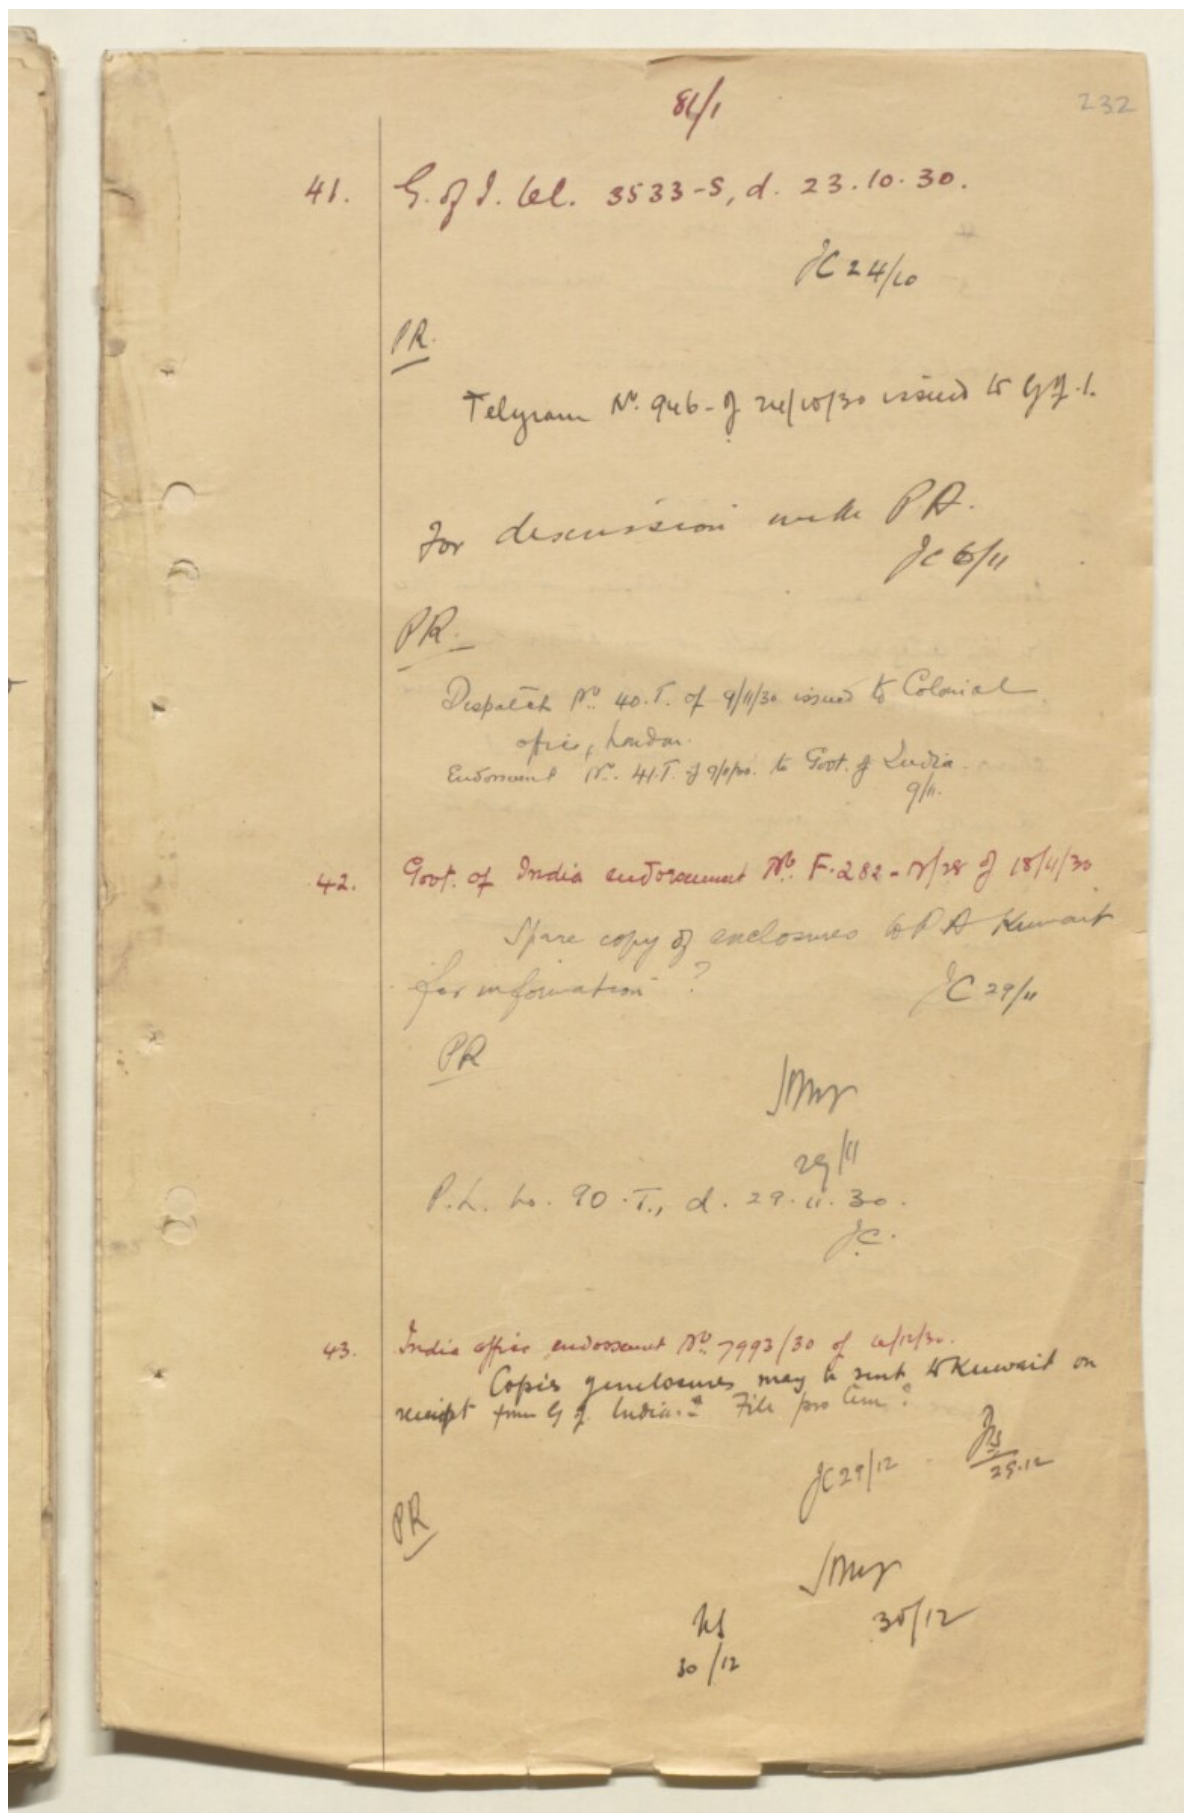 81/1
232
41. G. of I. tel. 3533-S, d. 23.10.30.
JC 24/10
PR.
Telegram No. 946 of 24/10/30 issued to G of I.
For discussion with PA.
JC 6/11
PR.
Despatch No. 40.T. of 9/11/30 issued to Colonial
office, London.
Endorsement No. 41.T. of 9/11/30. to Govt. of India.
9/11.
42. Govt. of India endorsement No. F.282-N/28 of 18/11/30
Spare copy of enclosures to PA Kuwait
for information ?
JC 29/11
PR
29/11
P.L. No. 90.T., d. 29.11.30.
JC.
43. India office endorsement No. 7993/30 of 4/12/30.
Copies of enclosures may be sent to Kuwait on
receipt from G of India. File pro tem ?
JC 29/12
29.12
PR
30/12
30/12